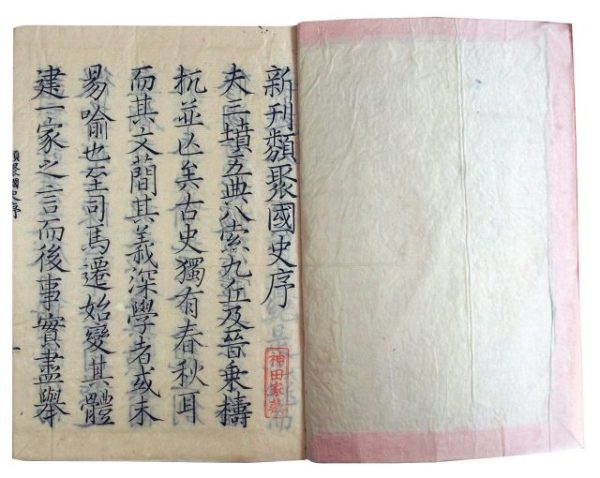 新刊類聚國史序
夫三墳五典八索九丘及晉乗檮
杌並亡矣古史獨有春秋耳
而其文蕳其義深學者或未
易喻也至司馬遷始變其體
建一家之言而後事實盡舉
類聚國史序
一
神田家蔵